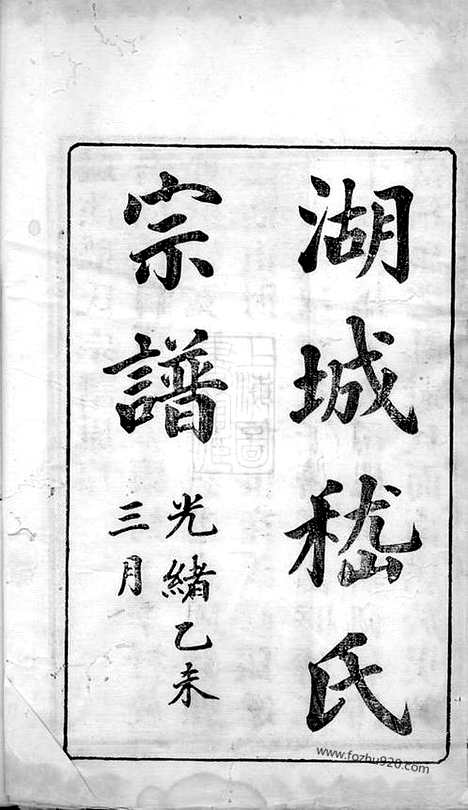 湖城嵇氏
宗譜
光緒乙未
三月
www.fozhu920.com